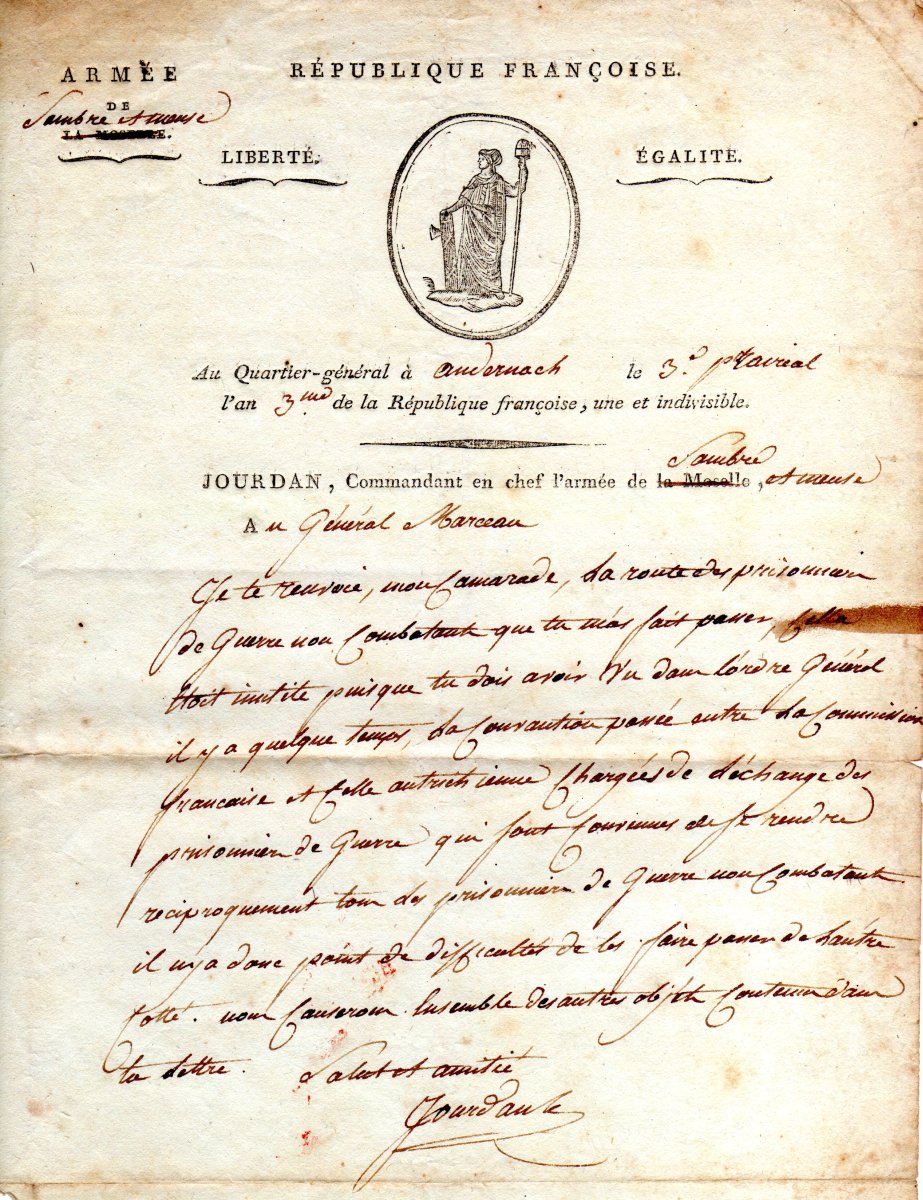 ARMÉE
DE
Sambre et meuse
LA MOSELLE.
RÉPUBLIQUE FRANÇOISE.
LIBERTÉ.
ÉGALITÉ.
Au Quartier-général à andernach le 3. praireal
l'an 3me de la République françoise, une et indivisible.
Sambre
JOURDAN, Commandant en chef l'armée de la Moselle, et meuse
A u Général Marceau
Je te renvoie, mon Camarade, La route des prisonniers
de Guerre non Combatants que tu m'as fait passer, Cella
Etoit inutile puisque tu dois avoir Vu dans L'ordre Général
il y a quelque temps, La Convantion passée entre La Commission
francaise et Celle autrichienne Chargées de L'échange des
prisonniers de Guerre qui sont Convenues de se rendre
réciproquement tous Les prisonniers de Guerre non Combatants
il ny a donc point de difficultés de les faire passer de L'autre
Cotté. nous Causerons Ensemble des autres objets Contenus dans
ta Lettre. Salut et amitié
Jourdan